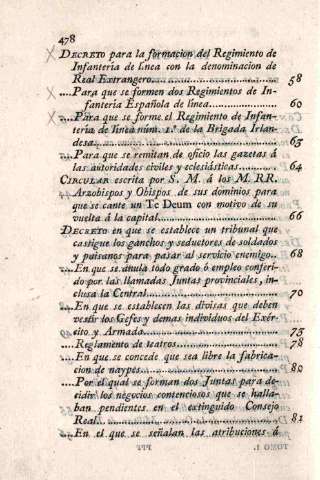 478
DECRETO para la formacion del Regimiento de
Infantería de línea con la denominacion de
Real Extrangero................ 58
....Para que se formen dos Regimientos de In-
fantería Española de línea................ 60
....Para que se forme el Regimiento de Infan-
tería de línea núm. 1.º de la Brigada Irlan-
desa................ 63
....Para que se remitan de oficio las gazetas á
las autoridades civiles y eclesiásticas........ 64
CIRCULAR escrita por S. M. á los M. RR.
Arzobispos y Obispos de sus dominios para
que se cante un Te Deum con motivo de su
vuelta á la capital................ 66
DECRETO en que se establece un tribunal que
castigue los ganchos y seductores de soldados
y paisanos para pasar al servicio enemigo.. 68
....En que se anula todo grado ó empleo conferi-
do por las llamadas Juntas provinciales, in-
clusa la Central................ 70
....En que se establecen las divisas que deben
vestir los Gefes y demas individuos del Exér-
cito y Armada................ 75
....Reglamento de teatros................ 78
....En que se concede que sea libre la fabrica-
cion de naypes................ 80
....Por el qual se forman dos Juntas para de-
cidir los negocios contenciosos que se halla-
ban pendientes en el extinguido Consejo
Real................ 81
....En el que se señalan las atribuciones á
TOMO I. PPP